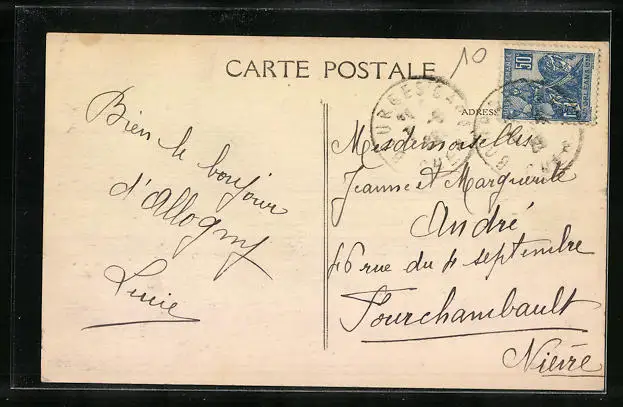 CARTE POSTALE
10
50
ADRESSE
BOURGES GARE
Bien le bonjour
d'Allogny
Lucie
Mesdemoiselles
Jeanne et Marguerite
André
46 rue du 4 septembre
Fourchambault
Nièvre